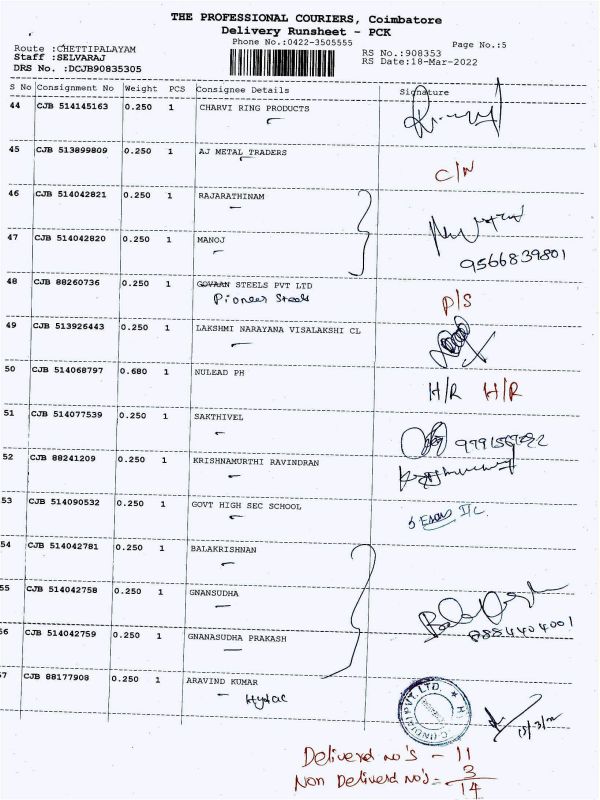 THE PROFESSIONAL COURIERS, Coimbatore
Delivery Runsheet - PCK
Phone No.:0422-3505555
Page No.:5
Route :CHETTIPALAYAM
Staff :SELVARAJ
DRS No. :DCJB90835305
RS No.:908353
RS Date:18-Mar-2022
S No Consignment No Weight PCS Consignee Details Signature
44 CJB 514145163 0.250 1 CHARVI RING PRODUCTS
45 CJB 513899809 0.250 1 AJ METAL TRADERS C/N
46 CJB 514042821 0.250 1 RAJARATHINAM
47 CJB 514042820 0.250 1 MANOJ
9566839801
48 CJB 88260736 0.250 1 GOVAAN STEELS PVT LTD
Pioneer Steels P/S
49 CJB 513926443 0.250 1 LAKSHMI NARAYANA VISALAKSHI CL
50 CJB 514068797 0.680 1 NULEAD PH H/R H/R
51 CJB 514077539 0.250 1 SAKTHIVEL
52 CJB 88241209 0.250 1 KRISHNAMURTHI RAVINDRAN
53 CJB 514090532 0.250 1 GOVT HIGH SEC SCHOOL
54 CJB 514042781 0.250 1 BALAKRISHNAN
55 CJB 514042758 0.250 1 GNANSUDHA
56 CJB 514042759 0.250 1 GNANASUDHA PRAKASH
8884404001
57 CJB 88177908 0.250 1 ARAVIND KUMAR
Hydac
(INDIA) PVT. LTD.
Deliverd no's - 11
Non Deliverd no's - 3
14